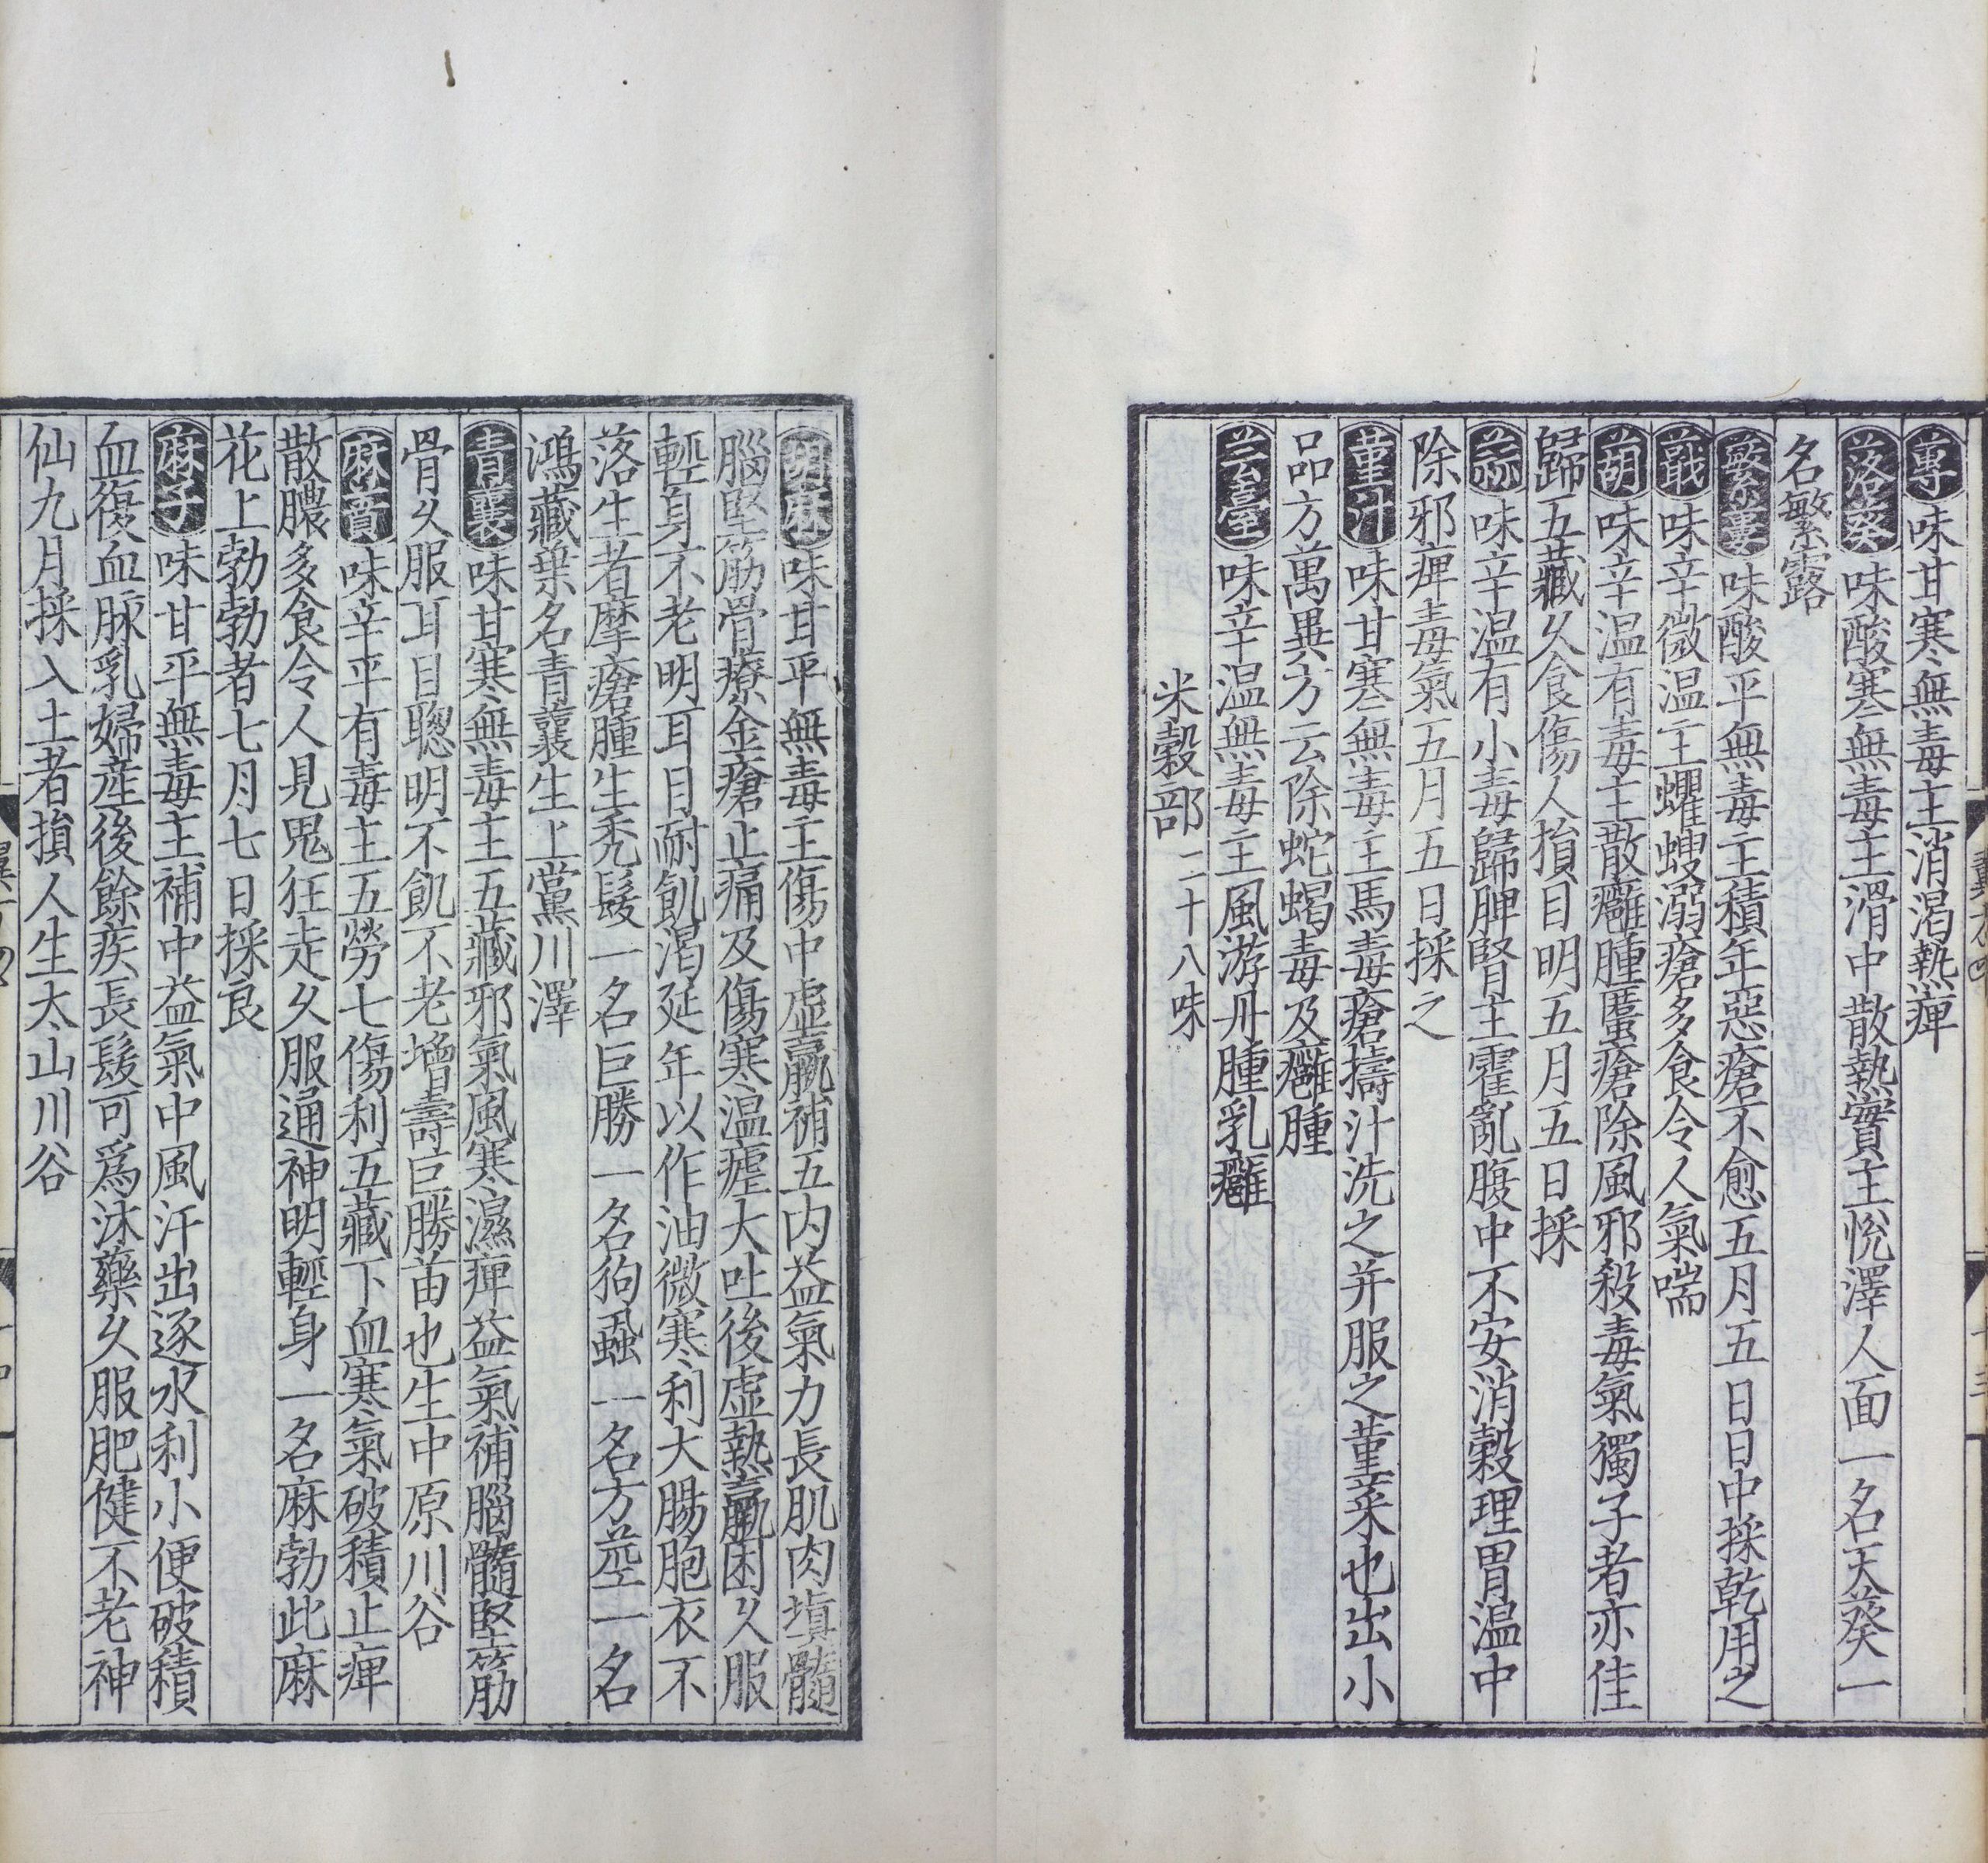 蓴味甘寒無毒主消渴熱痺
落葵味酸寒無毒主滑中散熱實主悅澤人面一名天葵一
名繁露
蘩蔞味酸平無毒主積年惡瘡不愈五月五日日中採乾用之
蕺味辛微温主蠷螋溺瘡多食令人氣喘
葫味辛温有毒主散癰腫䘌瘡除風邪殺毒氣獨子者亦佳
歸五藏久食傷人損目明五月五日採
蒜味辛温有小毒歸脾腎主霍亂腹中不安消穀理胃温中
除邪痺毒氣五月五日採之
堇汁味甘寒無毒主馬毒瘡擣汁洗之并服之堇菜也出小
品方萬畢方云除蛇蝎毒及癰腫
芸臺味辛温無毒主風游丹腫乳癰
米穀部二十八味
胡麻味甘平無毒主傷中虛羸補五内益氣力長肌肉塡髓
腦堅筋骨療金瘡止痛及傷寒温瘧大吐後虛熱羸困久服
輕身不老明耳目耐飢渴延年以作油微寒利大腸胞衣不
落生者摩瘡腫生秃髮一名巨勝一名狗蝨一名方莖一名
鴻藏葉名青蘘生上黨川澤
青蘘味甘寒無毒主五藏邪氣風寒濕痺益氣補腦髓堅筋
骨久服耳目聰明不飢不老增壽巨勝苗也生中原川谷
麻蕡味辛平有毒主五勞七傷利五藏下血寒氣破積止痺
散膿多食令人見鬼狂走久服通神明輕身一名麻勃此麻
花上勃勃者七月七日採良
麻子味甘平無毒主補中益氣中風汗出逐水利小便破積
血復血脉乳婦産後餘疾長髮可爲沐藥久服肥健不老神
仙九月採入土者損人生太山川谷